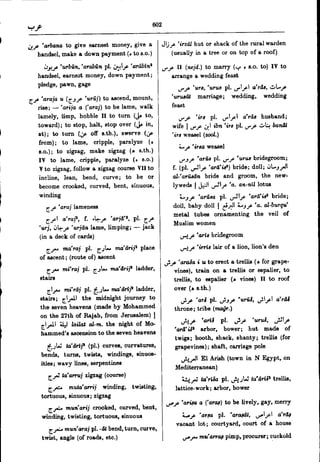 عرس
602
عربن ‘arbana to give earnest money, give a
handsel, make a down payment (ه to s.o.)
عربون ‘urbūn, ‘arabūn pl. عرابين ‘arābīn²
handsel, earnest money, down payment;
pledge, pawn, gage
عرج ‘araja u (عروج ‘urūj) to ascend, mount,
rise; — ‘arija a (‘araj) to be lame, walk
lamely, limp, hobble II to turn (الى to,
toward); to stop, halt, stop over (على in,
at); to turn (عن off s.th.), swerve (عن
from); to lame, cripple, paralyze (ه
s.o.); to zigzag, make zigzag (ه s.th.)
IV to lame, cripple, paralyze (ه s.o.)
V to zigzag, follow a zigzag course VII to
incline, lean, bend, curve; to be or
become crooked, curved, bent, sinuous,
winding
عرج ‘araj lameness
اعرج a‘raj², f. عرجاء ‘arjā’², pl. عرج
‘urj, عرجان ‘urjān lame, limping; — jack
(in a deck of cards)
معرج ma‘raj pl. معارج ma‘ārij² place
of ascent; (route of) ascent
معرج mi‘raj pl. معارج ma‘ārij² ladder,
stairs
معراج mi‘rāj pl. معاريج ma‘ārīj² ladder,
stairs; المعراج the midnight journey to
the seven heavens (made by Mohammed
on the 27th of Rajab, from Jerusalem) |
ليلة المعراج lailat al-m. the night of Mo-
hammed's ascension to the seven heavens
تعاريج ta‘ārīj² (pl.) curves, curvatures,
bends, turns, twists, windings, sinuos-
ities; wavy lines, serpentines
تعرج ta‘arruj zigzag (course)
متعرج muta‘arrij winding, twisting,
tortuous, sinuous; zigzag
منعرج mun‘arij crooked, curved, bent,
winding, twisting, tortuous, sinuous
منعرج mun‘araj pl. -āt bend, turn, curve,
twist, angle (of roads, etc.)
عرزال ‘irzāl hut or shack of the rural warden
(usually in a tree or on top of a roof)
عرس II (nejd.) to marry (ب s.o. to) IV to
arrange a wedding feast
عرس ‘urs, ‘urus pl. اعراس a‘rās, عرسات
‘urusāt marriage; wedding, wedding
feast
عرس ‘irs pl. اعراس a‘rās husband;
wife | ابن عرس ibn ‘irs pl. بنات عرس banāt
‘irs weasel (zool.)
عرسة ‘irsa weasel
عروس ‘arūs pl. عرس ‘urus bridegroom;
f. (pl. عرائس ‘arā’is²) bride; doll; العروسان
al-‘arūsān bride and groom, the new-
lyweds | عروس النيل ‘a. an-nīl lotus
عروسة ‘arūsa pl. عرائس ‘arā’is² bride;
doll, baby doll | عروسة البرقع ‘a. al-burqu‘
metal tubes ornamenting the veil of
Muslim women
عريس ‘arīs bridegroom
عريس ‘irrīs lair of a lion, lion's den
عرش ‘araša i u to erect a trellis (ه for grape-
vines), train on a trellis or espalier, to
trellis, to espalier (ه vines) II to roof
over (ه s.th.)
عرش ‘arš pl. عروش ‘urūš, اعراش a‘rāš
throne; tribe (magr.)
عريش ‘arīš pl. عرش ‘uruš, عرائش
‘arā’iš² arbor, bower; hut made of
twigs; booth, shack, shanty; trellis (for
grapevines); shaft, carriage pole
العريش El Arish (town in N Egypt, on
Mediterranean)
تعريشة ta‘rīša pl. تعاريش ta‘ārīš² trellis,
lattice-work; arbor, bower
عرص ‘ariṣa a (‘araṣ) to be lively, gay, merry
عرصة ‘arṣa pl. ‘araṣāt, اعراص a‘rāṣ
vacant lot; courtyard, court of a house
معرص mu‘arraṣ pimp, procurer; cuckold